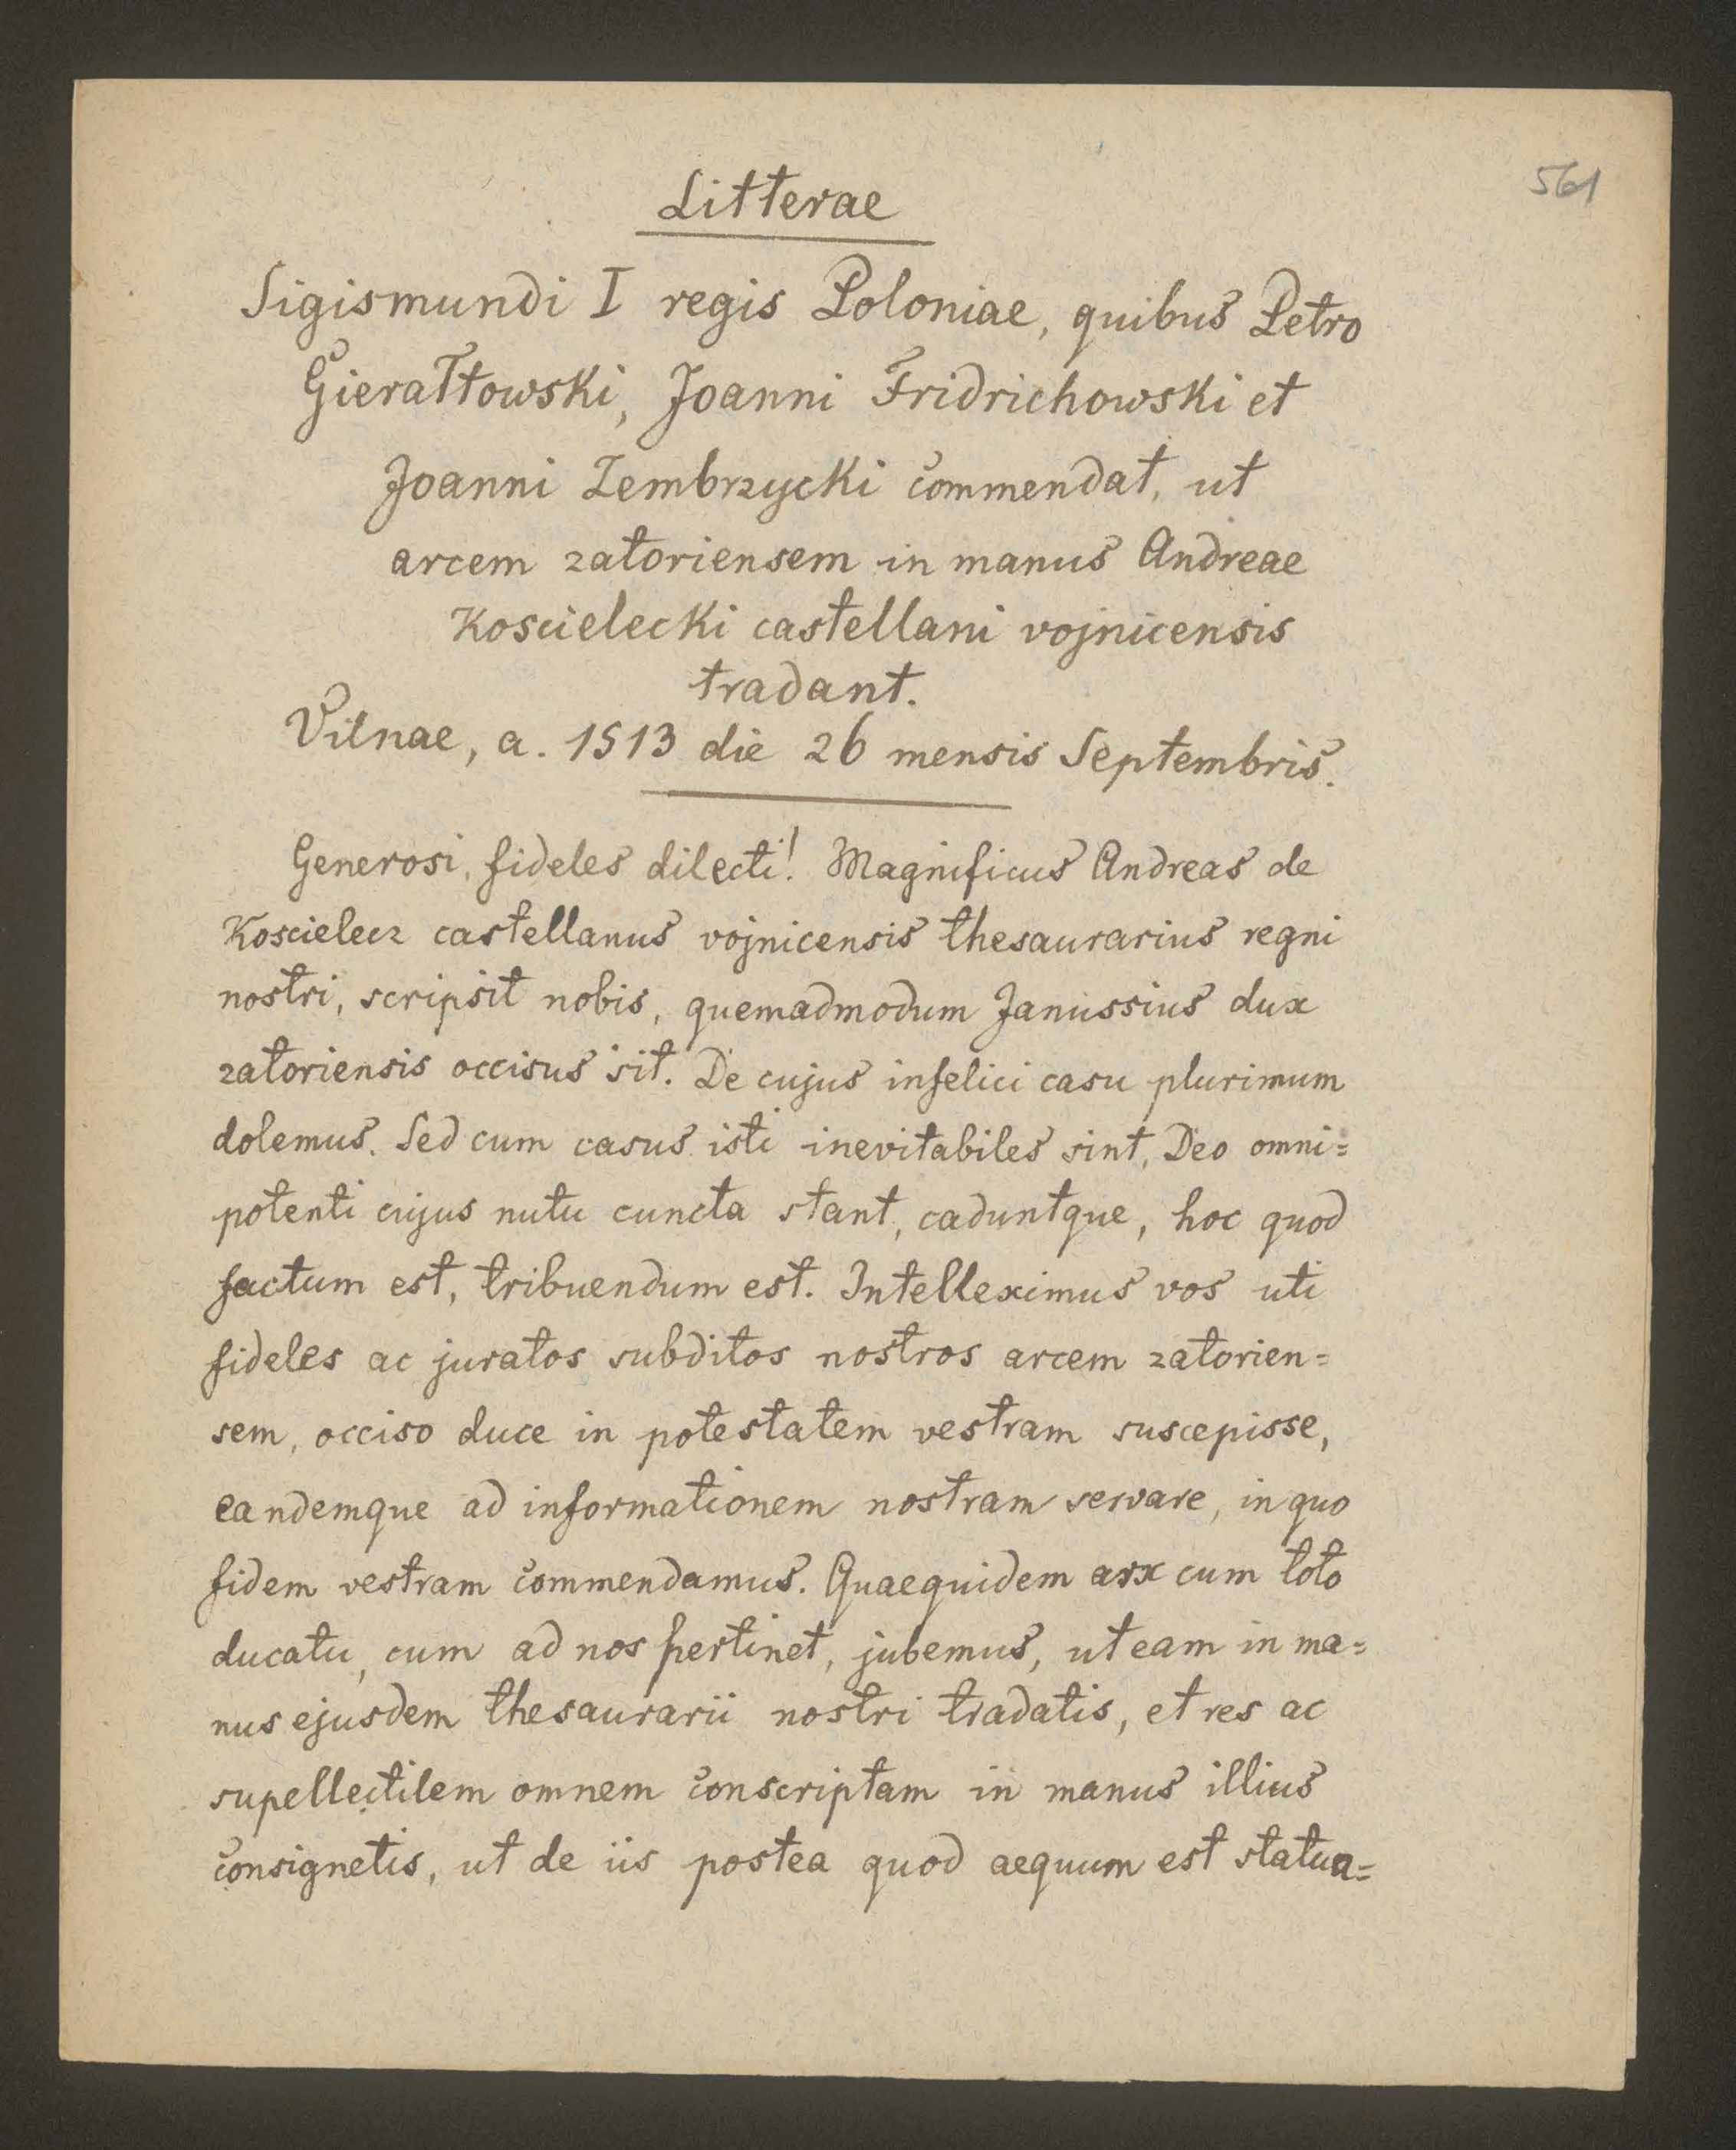 561
Litterae
Sigismundi I regis Poloniae, quibus Petro
Gierałtowski, Joanni Fridrichowski et
Joanni Zembrzycki commendat, ut
arcem zatoriensem in manus Andreae
Koscielecki castellani vojnicensis
tradant.
Vilnae, a. 1513 die 26 mensis Septembris.
Generosi, fideles dilecti! Magnificus Andreas de
Koscielecz castellanus vojnicensis thesaurarius regni
nostri, scripsit nobis, quemadmodum Janussius dux
zatoriensis occisus sit. De cujus infelici casu plurimum
dolemus. Sed cum casus isti inevitabiles sint, Deo omni=
potenti cujus nutu cuncta stant, caduntque, hoc quod
factum est, tribuendum est. Intelleximus vos uti
fideles ac juratos subditos nostros arcem zatorien=
sem, occiso duce in potestatem vestram suscepisse,
eandemque ad informationem nostram servare, in quo
fidem vestram commendamus. Quaequidem arx cum toto
ducatu, cum ad nos pertinet, jubemus, ut eam in ma=
nus ejusdem thesaurarii nostri tradatis, et res ac
supellectilem omnem conscriptam in manus illius
consignetis, ut de iis postea quod aequum est statua=